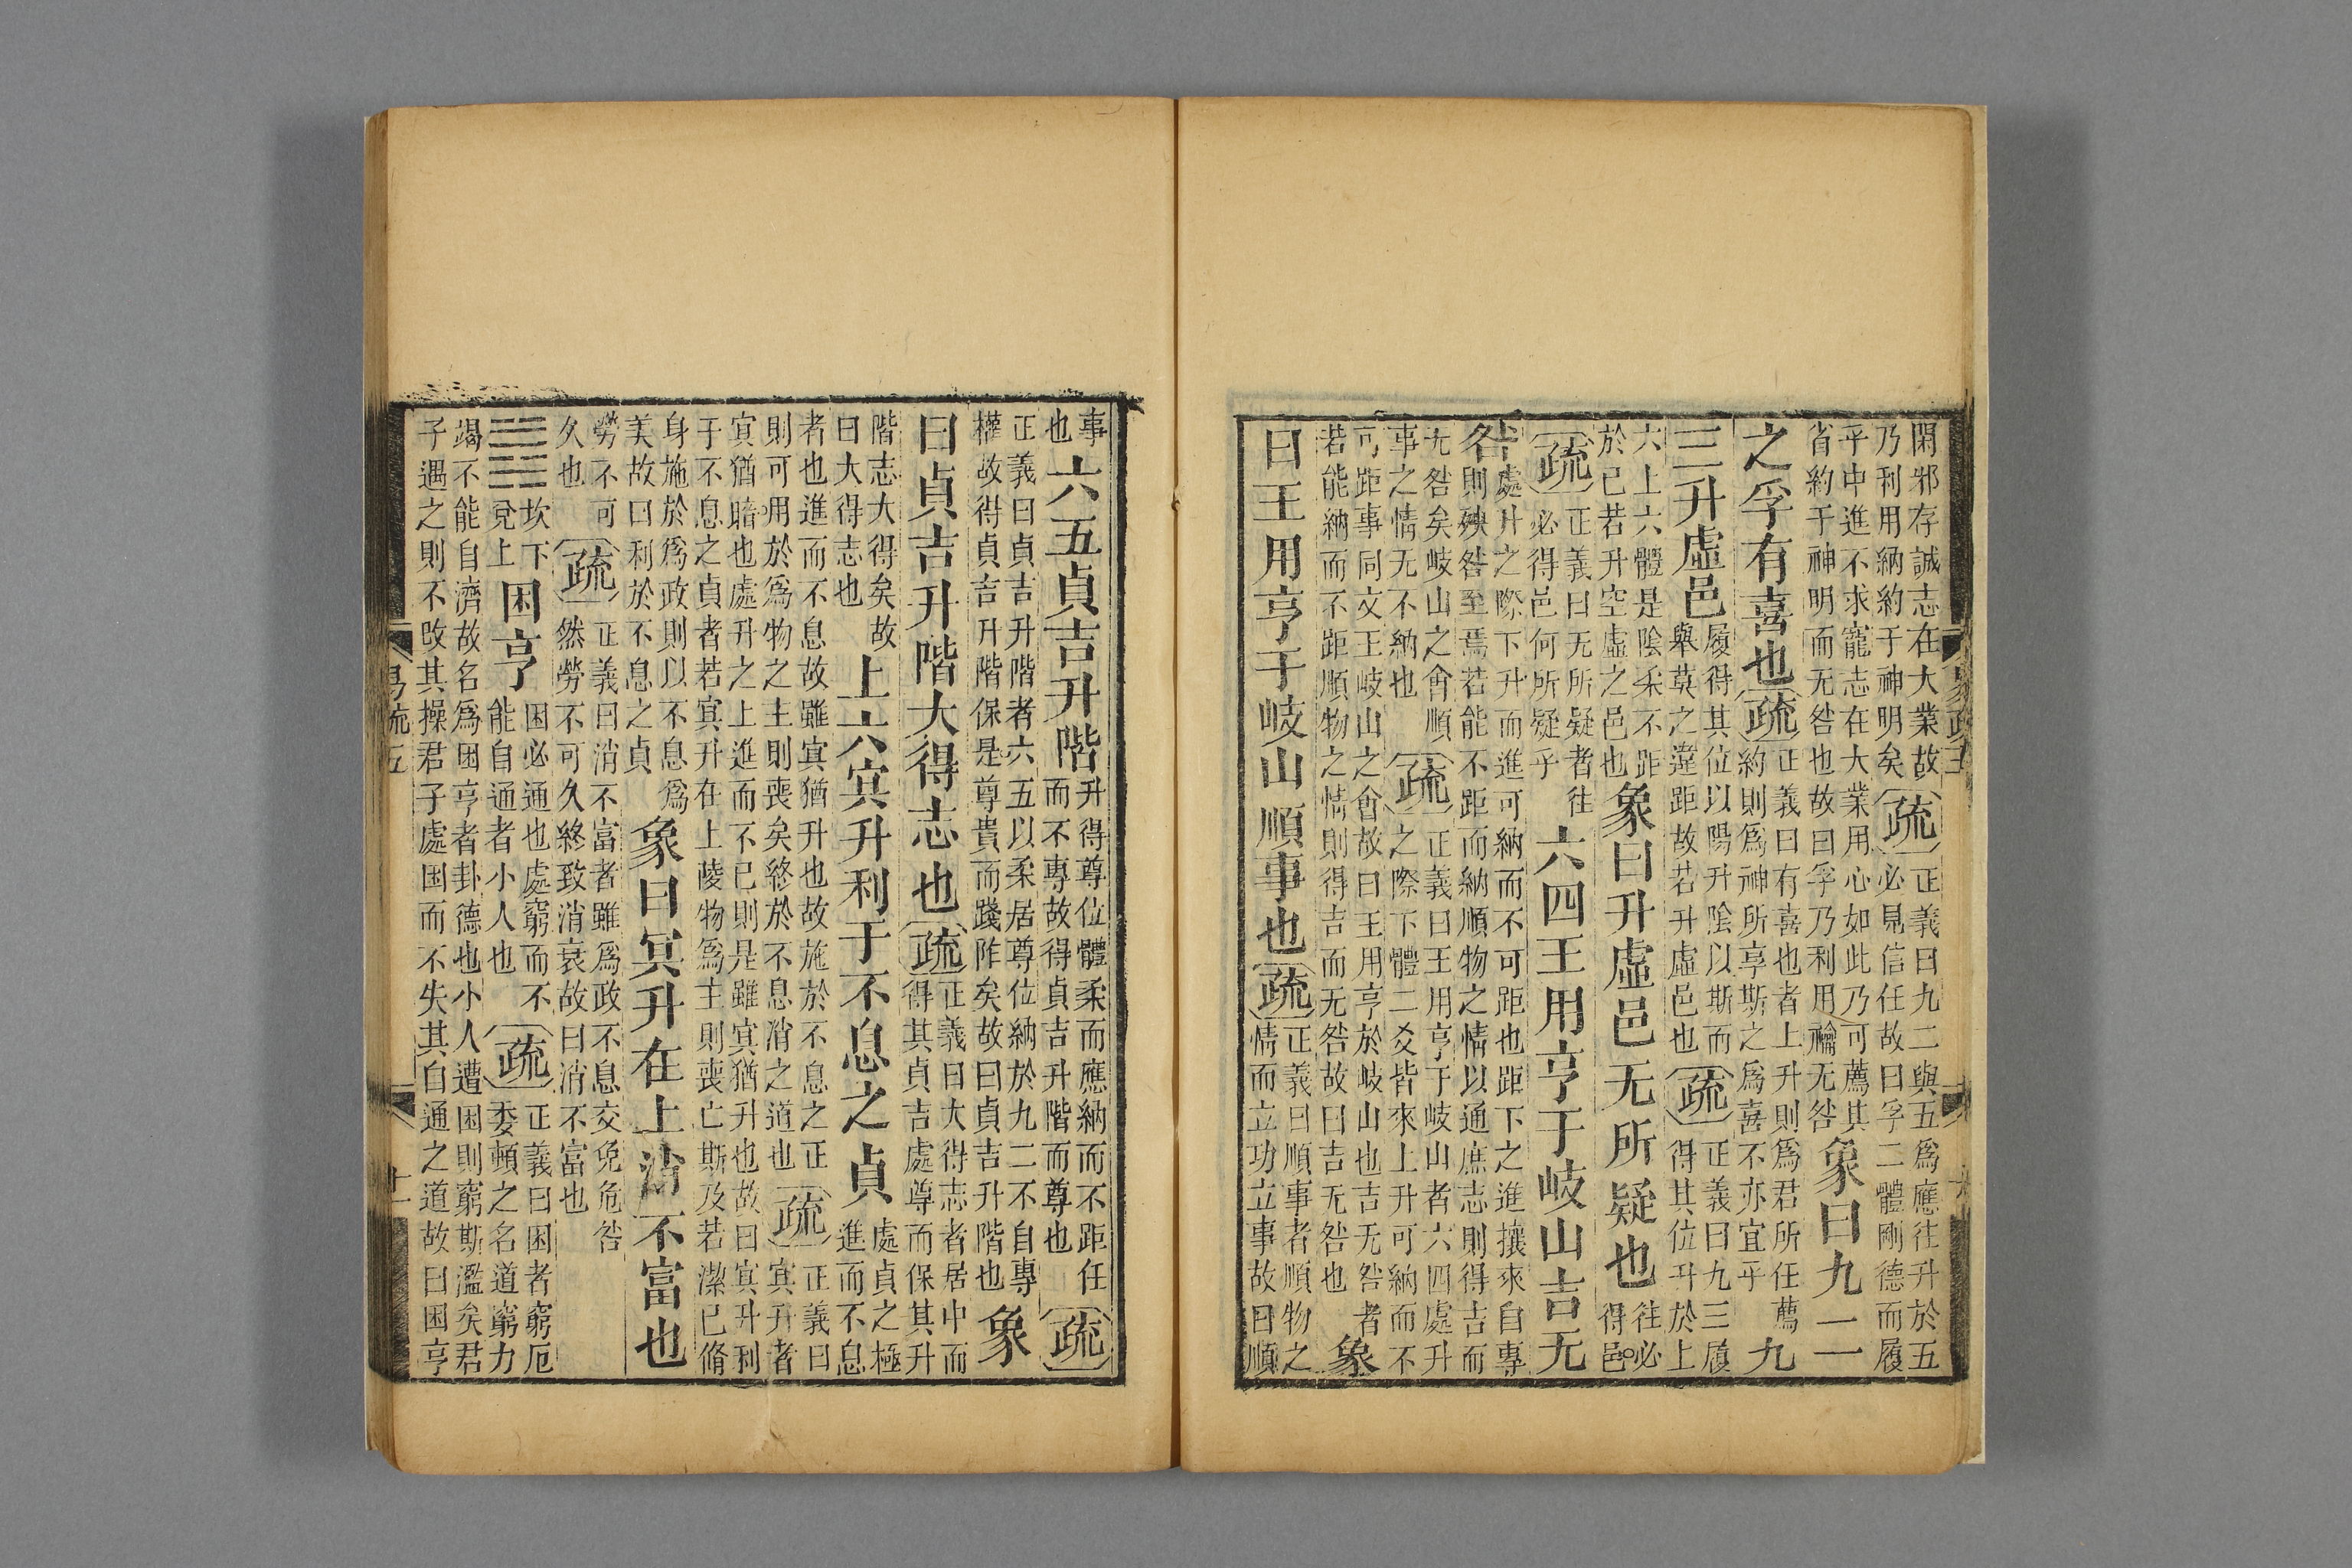 閑邪存誠志在大業故
乃利用納約于神明矣
疏
正義曰九二與五爲應往升於五
必見信任故曰孚二體剛德而履
乎中進不求寵志在大業用心如此乃可薦其
省約于神明而无咎也故曰孚乃利用禴无咎
象曰九二
之孚有喜也
疏
正義曰有喜也者上升則爲君所任薦
約則爲神所享斯之爲喜不亦宜乎
九
三升虛邑
履得其位以陽升陰以斯而
舉莫之違距故若升虛邑也
疏
正義曰九三履
得其位升於上
六上六體是陰柔不距
於已若升空虛之邑也
象曰升虛邑无所疑也
往必
得邑
疏
正義曰无所疑者往
必得邑何所疑乎
六四王用亨于岐山吉无
咎
處升之際下升而進可納而不可距也距下之進攘來自專
則殃咎至焉若能不距而納順物之情以通庶志則得吉而
无咎矣岐山之會順
事之情无不納也
疏
正義曰王用亨于岐山者六四處升
之際下體二爻皆來上升可納而不
可距事同文王岐山之會故曰王用亨於岐山也吉无咎者
若能納而不距順物之情則得吉而无咎故曰吉无咎也
象
曰王用亨于岐山順事也
疏
正義曰順事者順物之
情而立功立事故曰順
事
也
六五貞吉升階
升得尊位體柔而應納而不距任
而不專故得貞吉升階而尊也
疏
正義曰貞吉升階者六五以柔居尊位納於九二不自專
權故得貞吉升階保是尊貴而踐阼矣故曰貞吉升階也
象
曰貞吉升階大得志也
疏
正義曰大得志者居中而
得其貞吉處尊而保其升
階志大得矣故
曰大得志也
上六冥升利于不息之貞
處貞之極
進而不息
者也進而不息故雖冥猶升也故施於不息之正
則可用於爲物之主則喪矣終於不息消之道也
疏
正義曰
冥升者
冥猶暗也處升之上進而不已則是雖冥猶升也故曰冥升利
于不息之貞者若冥升在上陵物爲主則喪亡斯及若潔已脩
身施於爲政則以不息爲
美故曰利於不息之貞
象曰冥升在上消不富也
勞不可
久也
疏
正義曰消不富者雖爲政不息交免危咎
然勞不可久終致消衰故曰消不富也
坎下
兌上
困亨
困必通也處窮而不
能自通者小人也
疏
正義曰困者窮厄
委頓之名道窮力
竭不能自濟故名爲困亨者卦德也小人遭困則窮斯濫矣君
子遇之則不改其操君子處困而不失其自通之道故曰困亨
易疏五
十一